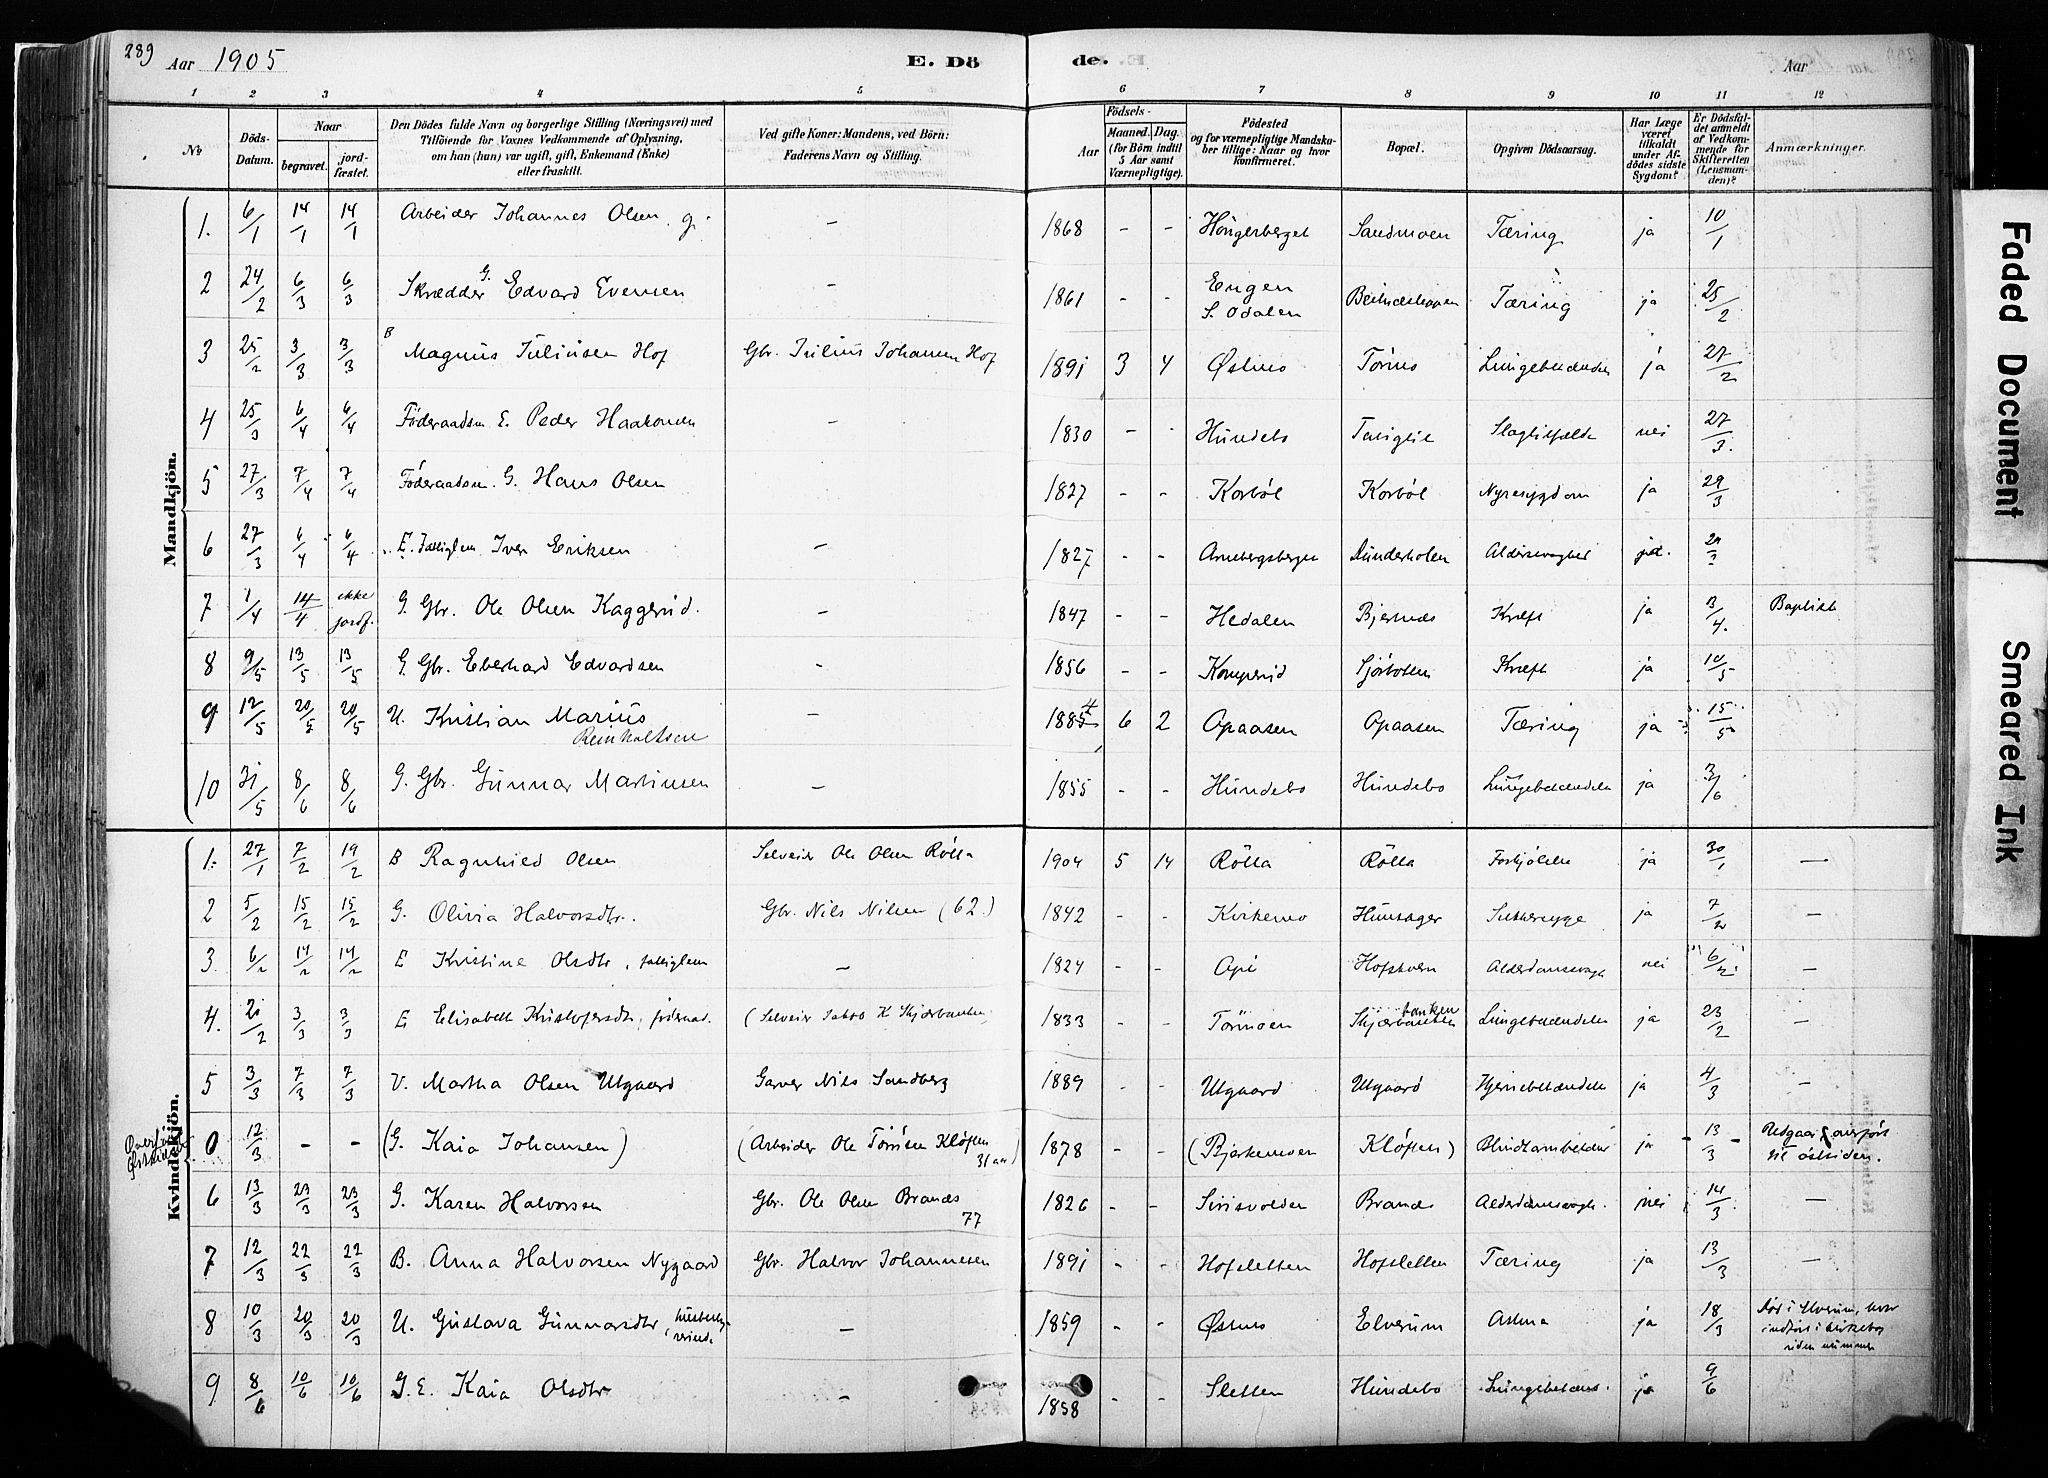 289 Aar 1905 E. Dö de. Aar
1 2 3 4 5 6 7 8 9 10 11 12
No Döds-Datum. Naar begravet. jordfæstet.
Den Dödes fulde Navn og borgerlige Stilling (Næringsvei) med
Tilföiende for Voxnes Vedkommende af Oplysning,
om han (hun) var ugift, gift, Enkemand (Enke)
eller fraskilt.
Ved gifte Koner: Mandens, ved Börn:
Faderens Navn og Stilling.
Födsels-
Aar Maaned. Dag.
(for Börn indtil 5 Aar samt Værnepligtige).
Födested
og for værnepligtige Mandskaber tillige: Naar og hvor konfirmeret.
Bopæl.
Opgiven Dödsaarsag.
Har Læge været tilkaldt under Afdödes sidste Sygdom?
Er Dödsfaldet anmeldt af Vedkommende for Skifteretten (Lensmanden)?
Anmærkninger.
Mandkjön.
1. 6/1 14/1 14/1 Arbeider Johannes Olsen g. – 1868 - - Höngerberget Sandmoen Tæring ja 10/1
2 24/2 6/3 6/3 Skrædder G. Edvard Evensen – 1861 - - Engen S. Odalen Tæring ja 25/2
3 25/2 3/3 3/3 B Magnus Juliusen Hof Gbr. Julius Johansen Hof 1891 3 4 Østmo Törmo Lungebetændelse ja 27/2
4 25/3 6/4 6/4 Föderaadsm. E. Peder Haakonsen – 1830 - - Hundebo Slagtilfælde nei 27/3
5 27/3 7/4 7/4 Föderaadsm. G. Hans Olsen 1827 - - Korböl Korböl Nyresygdom ja 29/3
6 27/3 6/4 6/4 E. Fattiglem Iver Eriksen – 1827 - - Arnebergsberget Alderssvaghet ja.
7 1/4 14/4 ikke jordf. G. Gbr. Ole Olsen Kaggerud. – 1847 - - Hedalen Bjernes Kræft ja 3/4. Baptist
8 9/5 13/5 13/5 G. Gbr. Eberhard Edvardsen - 1856 - - Komperud Sjöbotten Kræft ja 10/5
9 12/5 20/5 20/5 U. Kristian Marius Reinholtsen – 1885 4 6 2 Opaasen Opaasen Tæring ja 15/5
10 31/5 8/6 8/6 G. Gbr. Gunnar Martinsen – 1855 - - Hundebo Hundebo Lungebetændelse ja 3/6
Kvindekjön.
1. 27/1 7/2 19/2 B Ragnhild Olsen Selveier Ole Olsen Rölla 1904 5 14 Rölla Rölla Forkjölelse ja 30/1 –
2 5/2 15/2 15/2 G. Olivia Halvorsdtr. Gbr. Nils Nilsen (62.) 1842 - - Kirkemo Huusager Sukkersyge ja 7/2 –
3 6/2 14/2 14/2 E Kristine Olsdtr, fattiglem – 1824 - - Opi Hofskoven Alderdomssvagh nei 6/2 –
4. 21/2 3/3 3/3 E Elisabeth Kristofersdtr, föderaad. (Selveier Jakob K Skjærbanken 1833 - - Törmoen Skjærbanken banken Lungebetændelse ja 23/2 –
5 3/3 7/3 7/3 U. Martha Olsen Utgaard Garver Nils Sandberg 1889 - - Utgaard Utgaard Hjernebetændelse ja 4/3 –
Overført Østsiden 0 12/3 - - (G. Kaia Johansen) (Arbeider Ole Törrisen Kløften 31 aar) 1878 - - (Bjerkemoen Kløften) Blindtarmbetændelse ja 13/3 Udgaar, overført til östsiden.
6 13/3 23/3 23/3 G. Karen Halvorsen Gbr. Ole Olsen Brandes 77 1826 - - Sirisvolden Brandes Alderdomssvagh. nei 14/3 –
7 12/3 22/3 22/3 B. Anna Halvorsen Nygaard Gbr. Halvor Johannesen 1891 - - Hofsletten Hofsletten Tæring ja 13/3 –
8 10/3 20/3 20/3 U. Gustava Gunnarsdtr, – 1859 - - Østmo Elverum Astma ja 18/3 Död i Elverum, hvor indfört i kirkebog uden nummer
9 8/6 10/6 10/6 G. E. Kaia Olsdtr – 1858 - - Sletten Hundebo Lungebetænd. ja 9/6
Faded Document
Smeared Ink